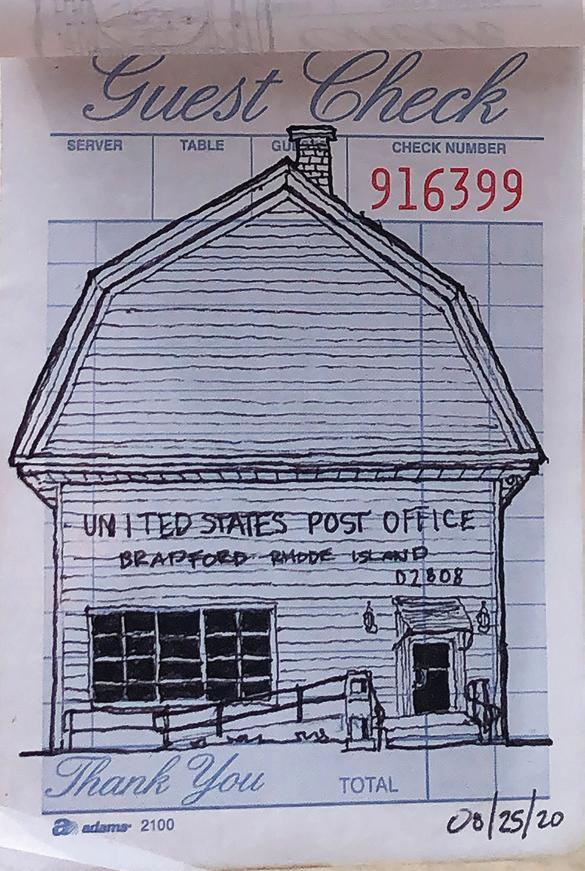 Guest Check
SERVER TABLE CHECK NUMBER
916399
UNITED STATES POST OFFICE
BRADFORD RHODE ISLAND
02808
Thank You TOTAL
adams 2100
08/25/20